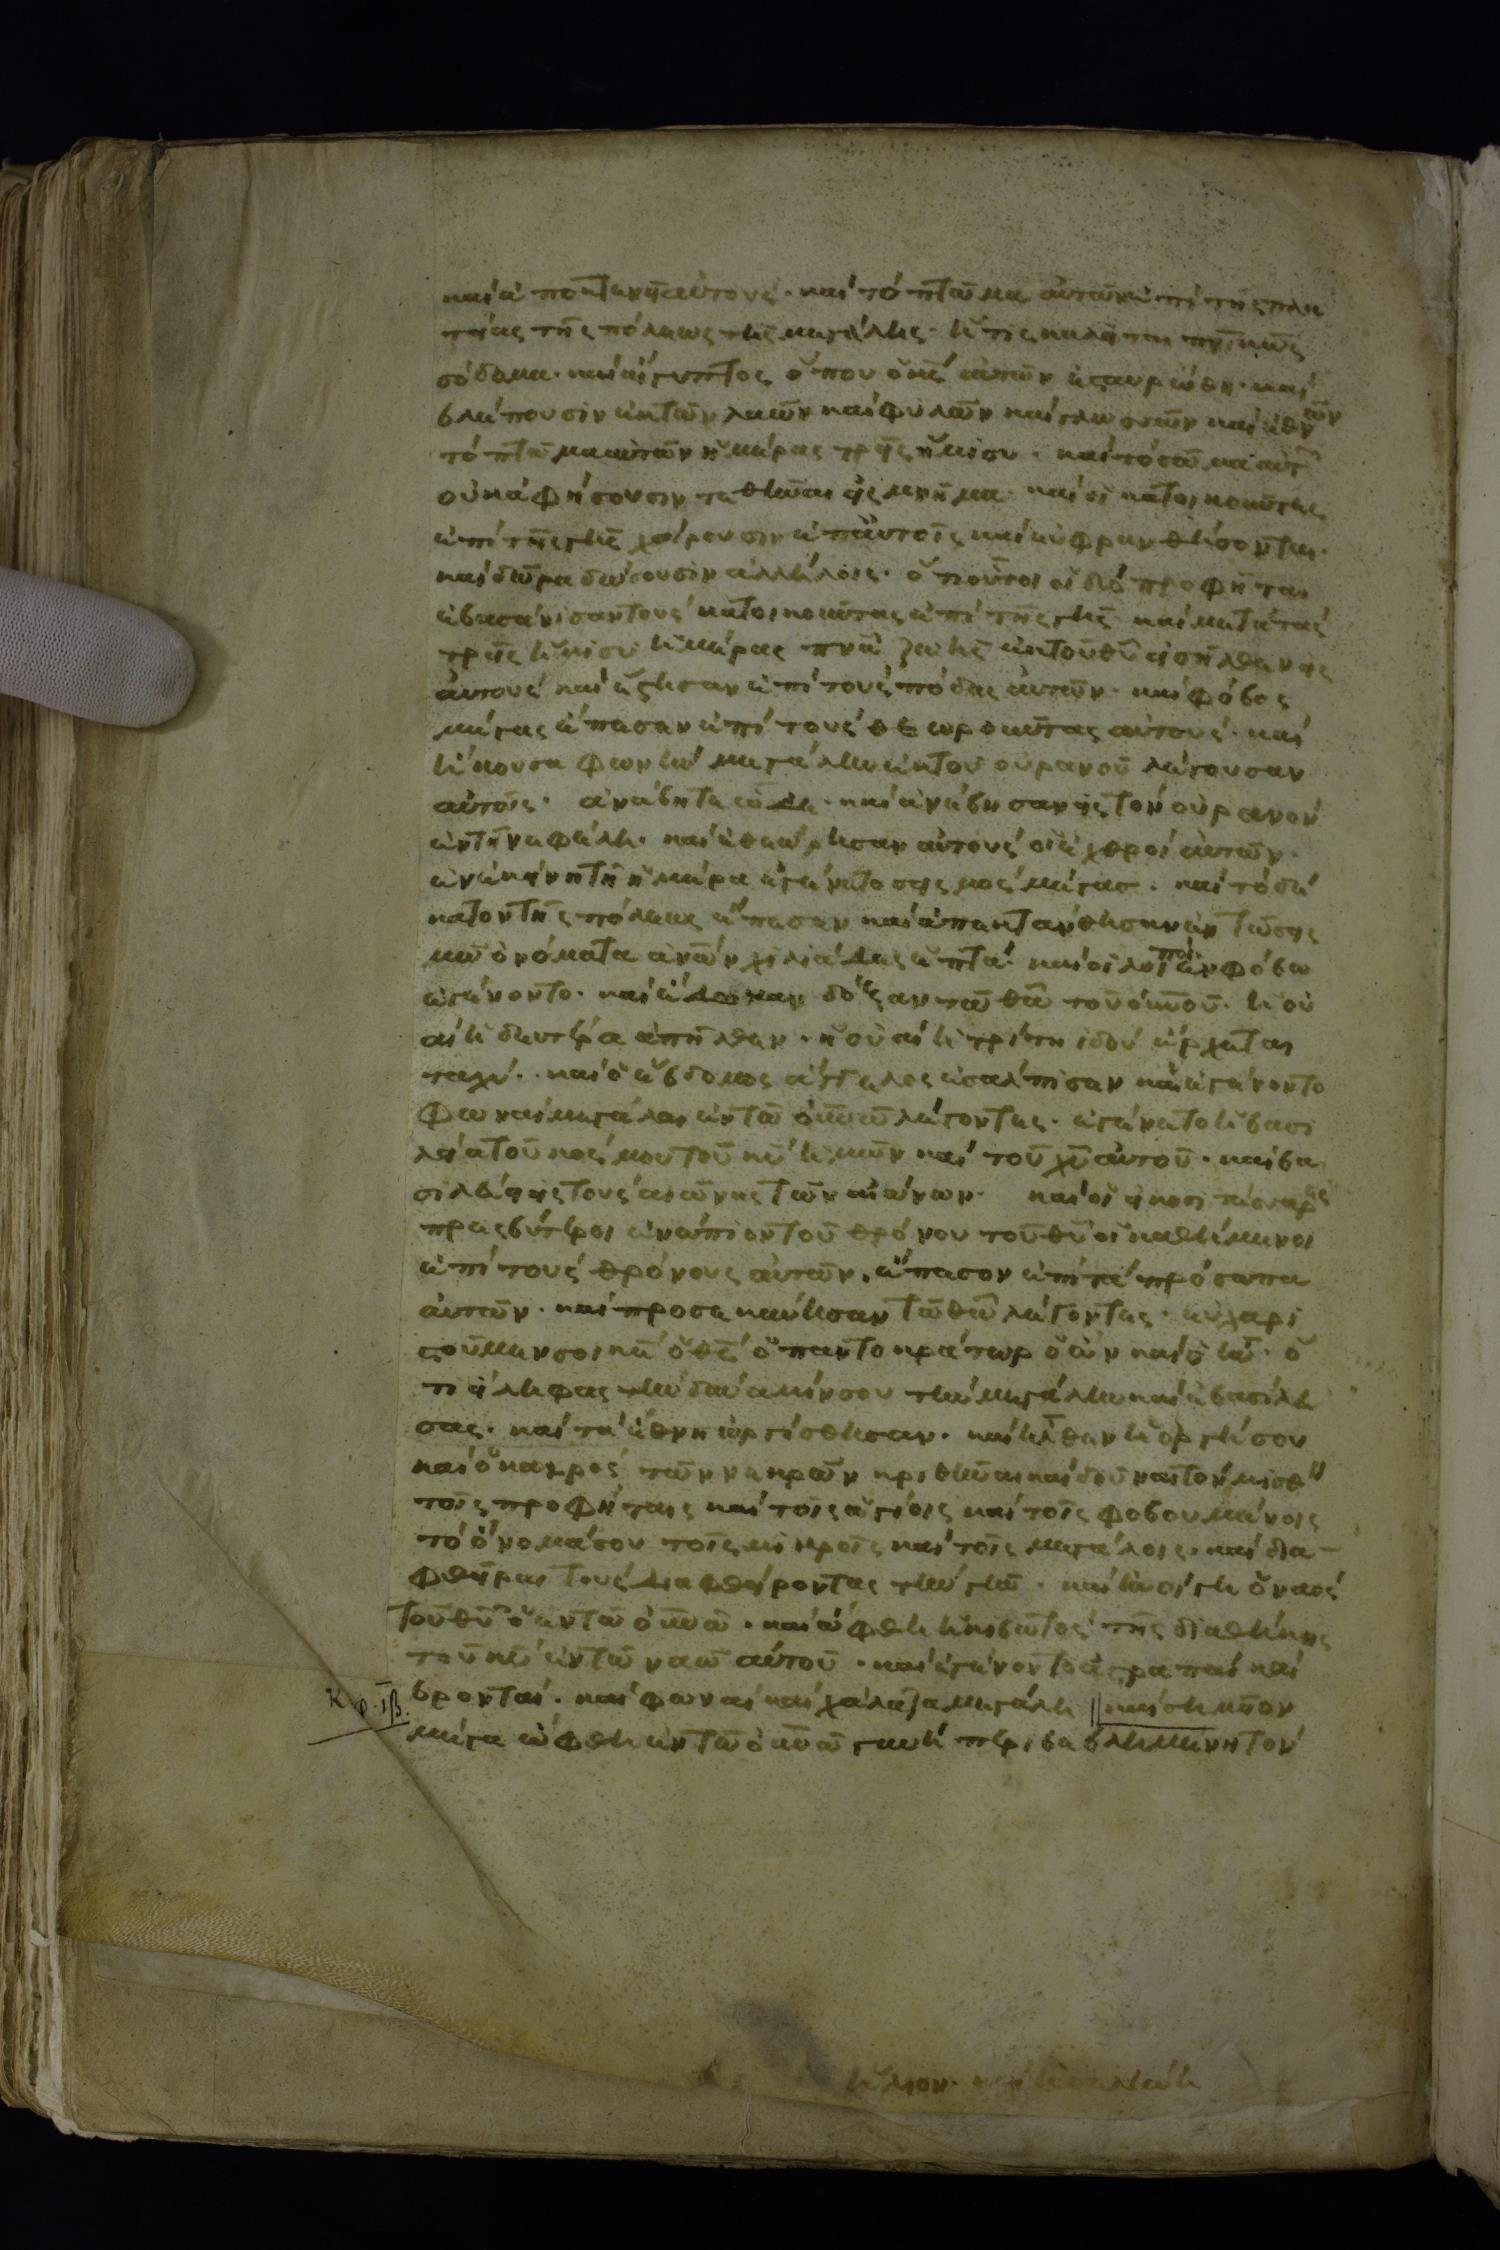 και ἀποκτενεῖ αὐτούς· και τό πτῶμα αὐτῶν ἐπί τῆς πλα
τείας τῆς πόλεως τῆς μεγάλης· ἥτις καλεῖται πνικῶς
σόδομα· και αἴγυπτος ὅπου ὁ κς αὐτῶν ἐσταυρώθη· και
βλέπουσιν ἐκ τῶν λαῶν και φυλῶν και γλωσσῶν και ἐθνῶν
τό πτῶμα αὐτῶν ἡμέρας τρεῖς ἥμισυ· και τό σῶμα αὐτ
οὐκ ἀφήσουσιν τεθῆναι εἰς μνῆμα· και οἱ κατοικοῦντες
ἐπί τῆς γῆς χαίρουσιν ἐπ αὐτοῖς και εὐφρανθήσονται·
και δῶρα δώσουσιν ἀλλήλοις· ὅτι οὗτοι οἱ δύο προφῆται
ἐβασάνισαν τούς κατοικοῦντας ἐπί τῆς γῆς· και μετά τάς
τρεῖς ἥμισυ ἡμέρας πνα ζωῆς ἐκ τοῦ θυ εἰσῆλθεν εἰς
αὐτούς και ἔστησαν ἐπί τούς πόδας αὐτῶν· και φόβος
μέγας ἔπεσεν ἐπί τούς θεωροῦντας αὐτούς· και
ἤκουσα φωνήν μεγάλην ἐκ τοῦ οὐρανοῦ λέγουσαν
αὐτοῖς· ἀνάβητε ὧδε· και ἀνέβησαν εἰς τόν οὐρανόν
ἐν τῇ νεφέλη· και ἐθεώρησαν αὐτούς οἱ ἐχθροί αὐτῶν·
ἐν ἐκείνη τῇ ἡμέρα ἐγένετο σεισμός μέγας· και τό δέ
κατον τῆς πόλεως ἔπεσεν και ἀπεκτάνθησαν ἐν τῶ σεις
μῶ ὀνόματα ἀνῶν χιλιάδες ἑπτά· και οἱ λοιποί ἐν φόβω
ἐγένοντο· και ἔδωκαν δόξαν τῶ θω τοῦ οὐνοῦ· ἡ οὐ
αί ἡ δευτέρα ἀπῆλθεν· ἡ οὐαί ἡ τρίτη ἰδού ἔρχεται
ταχύ· και ὁ ἕβδομος ἄγγελος ἐσάλπισεν και ἐγένοντο
φωναί μεγάλαι ἐν τῶ οὐνῶ λέγοντες· ἐγένετο ἡ βασι
λεία τοῦ κόσμου τοῦ κυ ἡμῶν και τοῦ χυ αὐτοῦ· και βα
σιλεύσει εἰς τούς αἰῶνας τῶν αἰώνων· και οἱ εἴκοσι τέσσαρες
πρεσβύτεροι ἐνώπιον τοῦ θρόνου τοῦ θυ οἱ καθήμενοι
ἐπί τούς θρόνους αὐτῶν· ἔπεσον ἐπί τά πρόσωπα
αὐτῶν· και προσεκύνησαν τῶ θω λέγοντες· εὐχαρι
στοῦμεν σοι κε ὁ θς ὁ παντοκράτωρ ὁ ὤν και ὁ ἦν· ὅ
τι εἴληφας τήν δύναμίν σου τήν μεγάλην και ἐβασίλευ
σας· και τά ἔθνη ὠργίσθησαν· και ἦλθεν ἡ ὀργή σου
και ὁ καιρός τῶν νεκρῶν κριθῆναι και δοῦναι τόν μισθόν
τοῖς προφήταις και τοῖς ἁγίοις και τοῖς φοβουμένοις
τό ὄνομά σου τοῖς μικροῖς και τοῖς μεγάλοις· και δια-
φθεῖραι τούς διαφθείροντας τήν γῆν· και ἠνοίγη ὁ ναός
τοῦ θυ ὁ ἐν τῶ οὐνῶ· και ὤφθη ἡ κιβωτός τῆς διαθήκης
τοῦ κυ ἐν τῶ ναῶ αὐτοῦ· και ἐγένοντο ἀστραπαί και
Κεφ. ιβ. βρονταί· και φωναί και χάλαζα μεγάλη || και σημεῖον
μέγα ὤφθη ἐν τῶ οὐνῶ γυνή περιβεβλημένη τόν
ἥλιον· και ἡ σελήνη